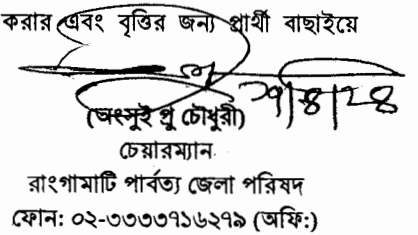 করার এবং বৃত্তির জন্য প্রার্থী বাছাইয়ে
(অংসুই প্রু চৌধুরী)
চেয়ারম্যান
রাংগামাটি পার্বত্য জেলা পরিষদ
ফোন: ০২-৩৩৩৩৭১৬২৭৯ (অফি:)